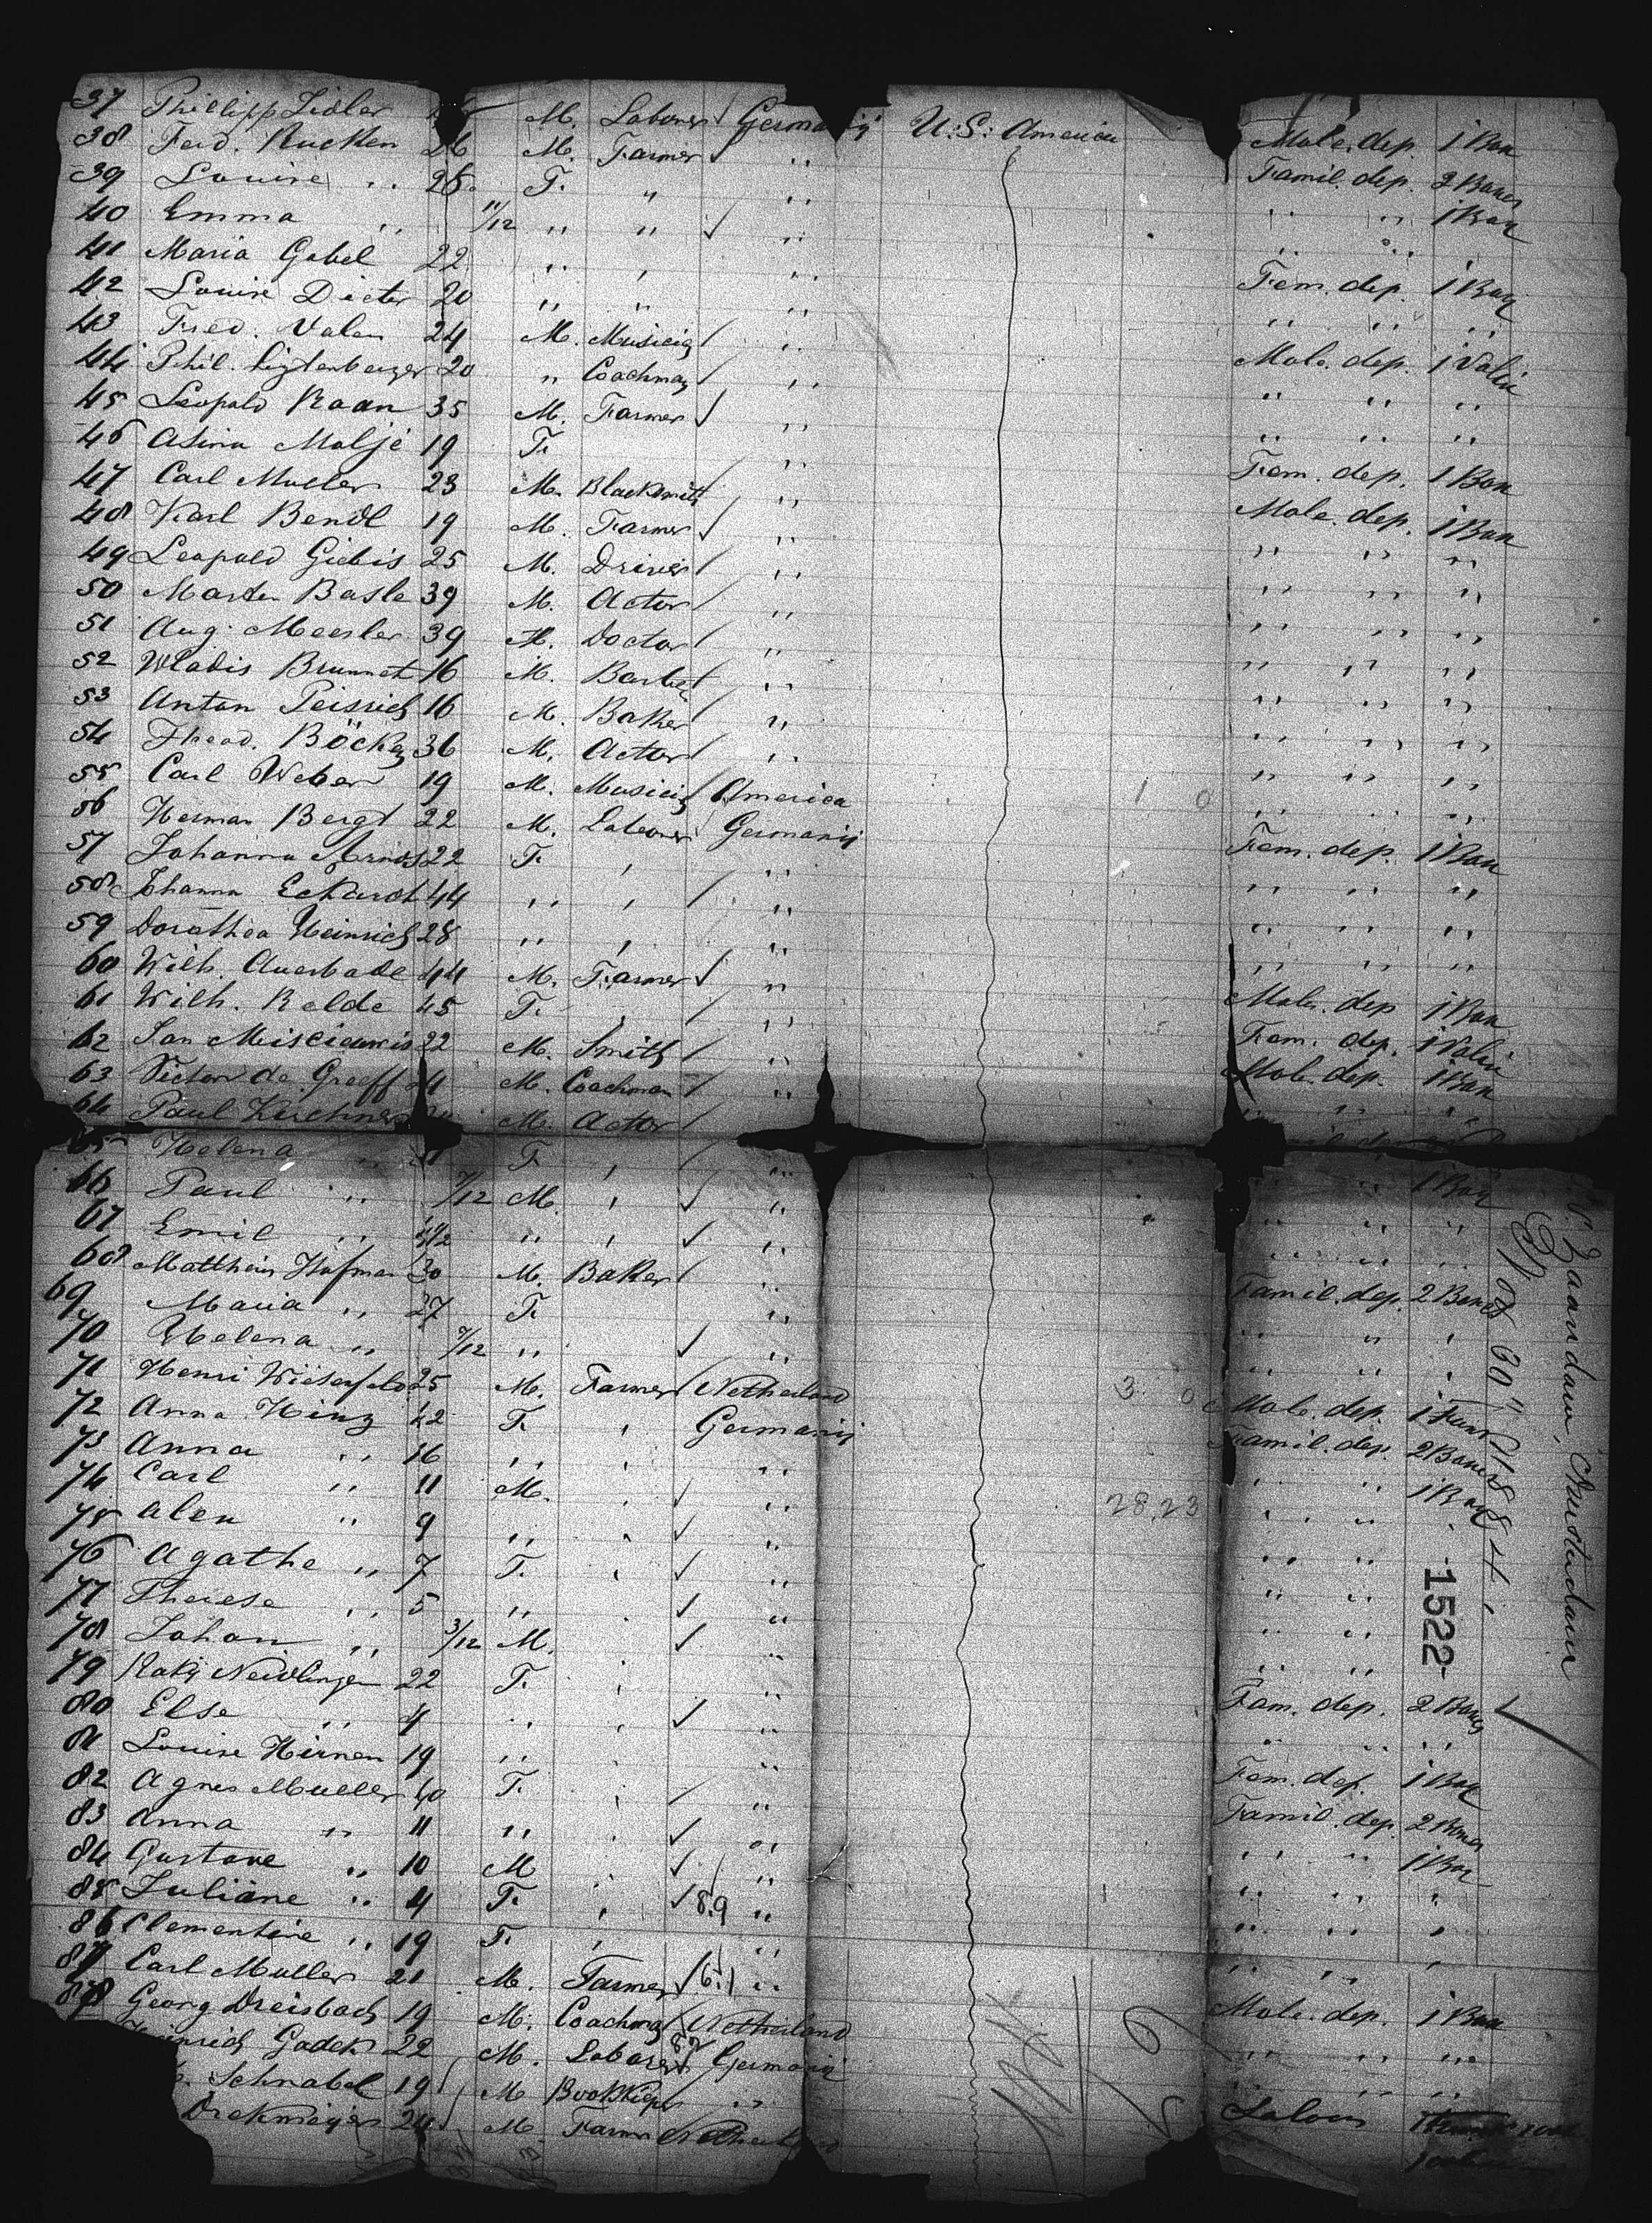 37 Phillipp Zidler M. Laborer Germany U.S. America Male. dep. 1 Box
38 Ferd. Rucken 26 M. Farmer " Famil. dep. 2 Boxes
39 Louise " 26 F. " " " " 1 Box
40 Emma " 11/12 " " " " "
41 Maria Gebel 22 " " " Fem. dep. 1 Box
42 Louise Dieter 20 " " " " " "
43 Fred. Valen 24 M. Musicia " Male. dep. 1 Valise
44 Phil. Ligtenberger 20 " Coachman " " " "
45 Leopold Raan 35 M. Farmer " " " "
46 Asina Malje 19 F. " Fem. dep. 1 Box
47 Carl Mueler 23 M. Blacksmith " Male. dep. 1 Box
48 Karl Bendl 19 M. Farmer " " " "
49 Leopold Giebis 25 M. Driver " " " "
50 Marten Basle 39 M. Actor " " " "
51 Aug. Meesler 39 M. Doctor " " " "
52 Wladis Brunnet 16 M. Barber " " " "
53 Anton Peissich 16 M. Baker " " " "
54 Thead. Böcken 36 M. Actor " " " "
55 Carl Weber 19 M. Musicia America 1 0 " " "
56 Herman Bergt 22 M. Laborer Germany
57 Johanna Arnds 22 F. " " Fem. dep. 1 Box
58 Johanna Eckardt 44 " " " " " "
59 Dorothea Heinrich 28 " " " " " "
60 Wilh. Auerbade 44 M. Farmer " " " "
61 Wilh. Relde 45 F. " " Male. dep 1 Box
62 Jan Miscieuwis 22 M. Smith " Fem. dep. 1 Valise
63 Victor de Graeff M. Coachman " Male. dep. 1 Box
64 Paul Kirchner M. Actor " " "
65 Helena " F. " "
66 Paul " 7/12 M. " " " 1 Box
67 Emil " " " " " " "
68 Mattheus Hofman 30 M. Baker " " " "
69 Maria " 27 F. " Famil. dep. 2 Boxes
70 Helena " 7/12 " " " " "
71 Henri Wieserfeld 25 M. Farmer Netherland 3 0 " " "
72 Anna Hinz 42 F. " Germany Male. dep. 1
73 Anna " 16 " " " Famil. dep. 2 Boxes
74 Carl " 11 M. " " 28,23 " " 1 Box
75 Alex " 9 " " " " " "
76 Agathe " 7 F. " " " "
77 Therese " 5 " " " " "
78 Johan " 3/12 M. " " "
79 Katij Neidlinger 22 F. " " " "
80 Else " 4 " " " Fam. dep. 2 Boxes
81 Louise Hirnen 19 " " " " "
82 Agnes Mueller 40 F. " " Fem. dep. 1 Box
83 Anna " 11 " " " Famil. dep. 2 Boxes
84 Gustave " 10 M " " " 1 Box
85 Juliane " 4 F. " 8.9 " " " "
86 Clementine " 19 F. " " " " "
87 Carl Muller 21 M. Farmer 6.1 " " " "
88 Georg Dreisbach 19 M. Coachman Netherland Male. dep. 1 Box
Heinrich Gadek 22 M. Laborer Germany " " "
Schnabel 19 M Bookkiepr " " " "
Drekmeijer 24 M. Farmer Netherland Saloon
S.S. Zaandam, Amsterdam
1884.
-1522-